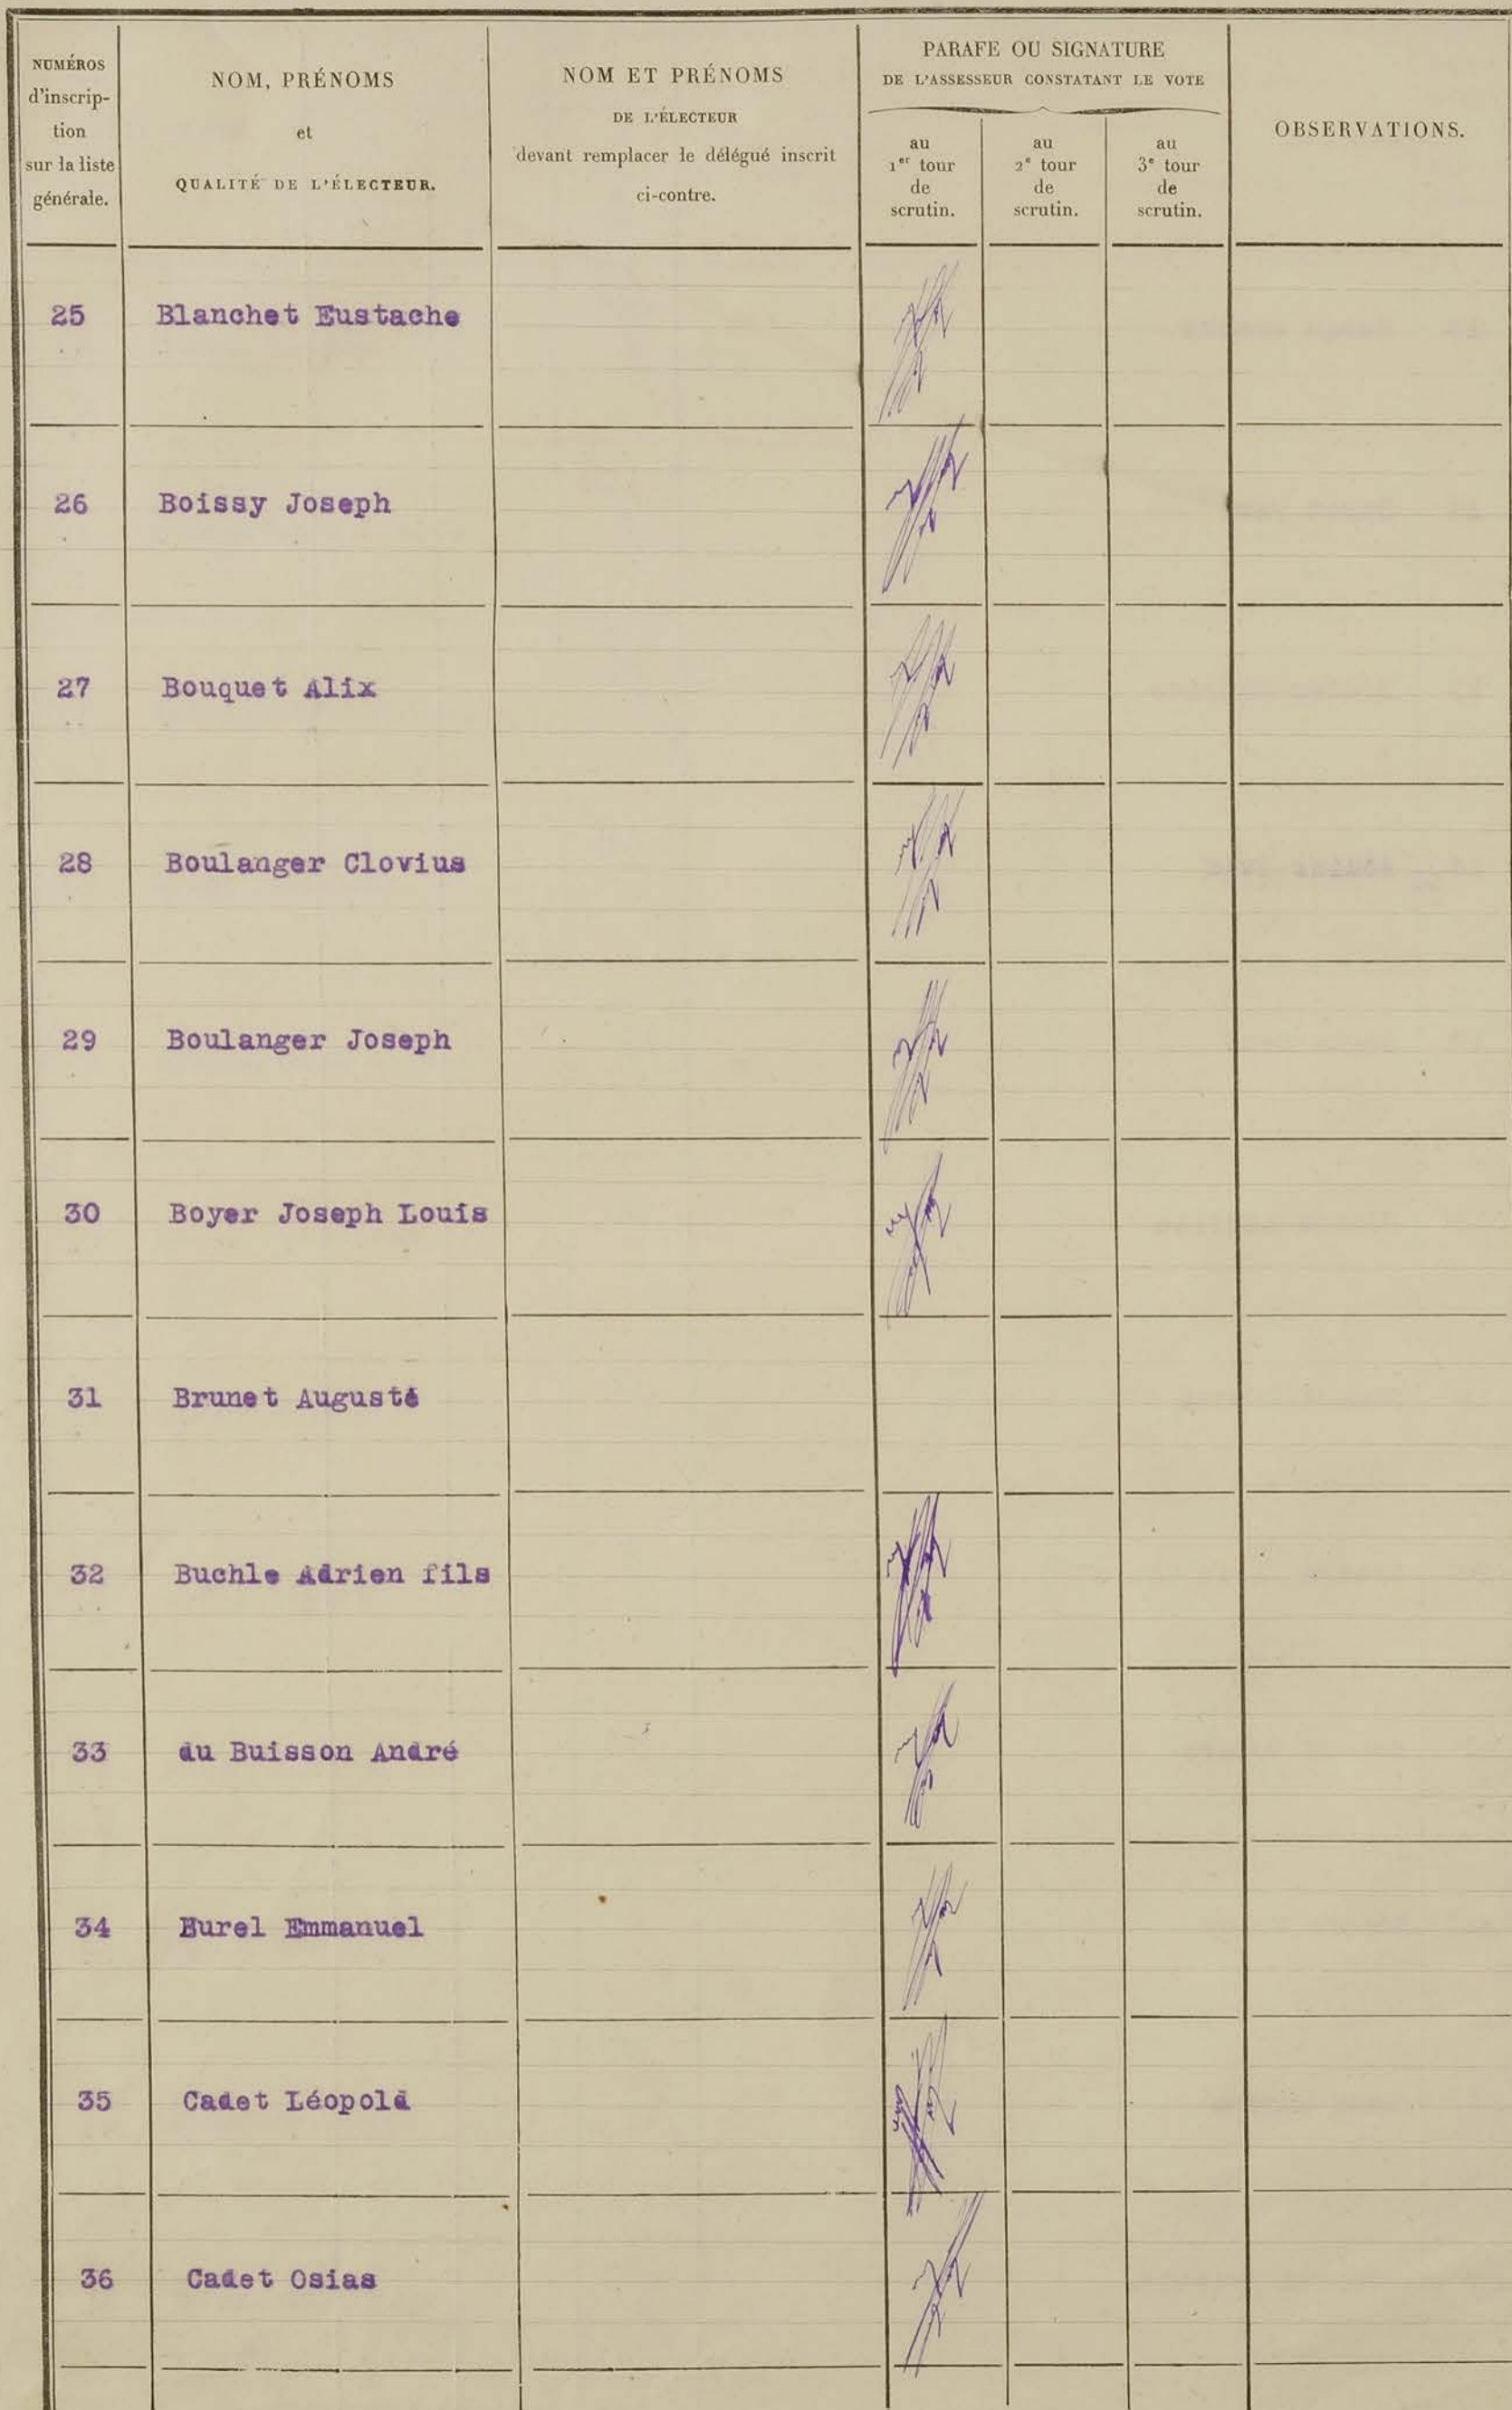 NUMÉROS
d'inscrip-
tion
sur la liste
générale.
NOM, PRÉNOMS
et
QUALITÉ DE L'ÉLECTEUR.
NOM ET PRÉNOMS
DE L'ÉLECTEUR
devant remplacer le délégué inscrit
ci-contre.
PARAFE OU SIGNATURE
DE L'ASSESSEUR CONSTATANT LE VOTE
au
1er tour
de
scrutin.
au
2e tour
de
scrutin.
au
3e tour
de
scrutin.
OBSERVATIONS.
25 Blanchet Eustache
26 Boissy Joseph
27 Bouquet Alix
28 Boulanger Clovius
29 Boulanger Joseph
30 Boyer Joseph Louis
31 Brunet Augusté
32 Buchle Adrien fils
33 du Buisson André
34 Burel Emmanuel
35 Cadet Léopold
36 Cadet Osias